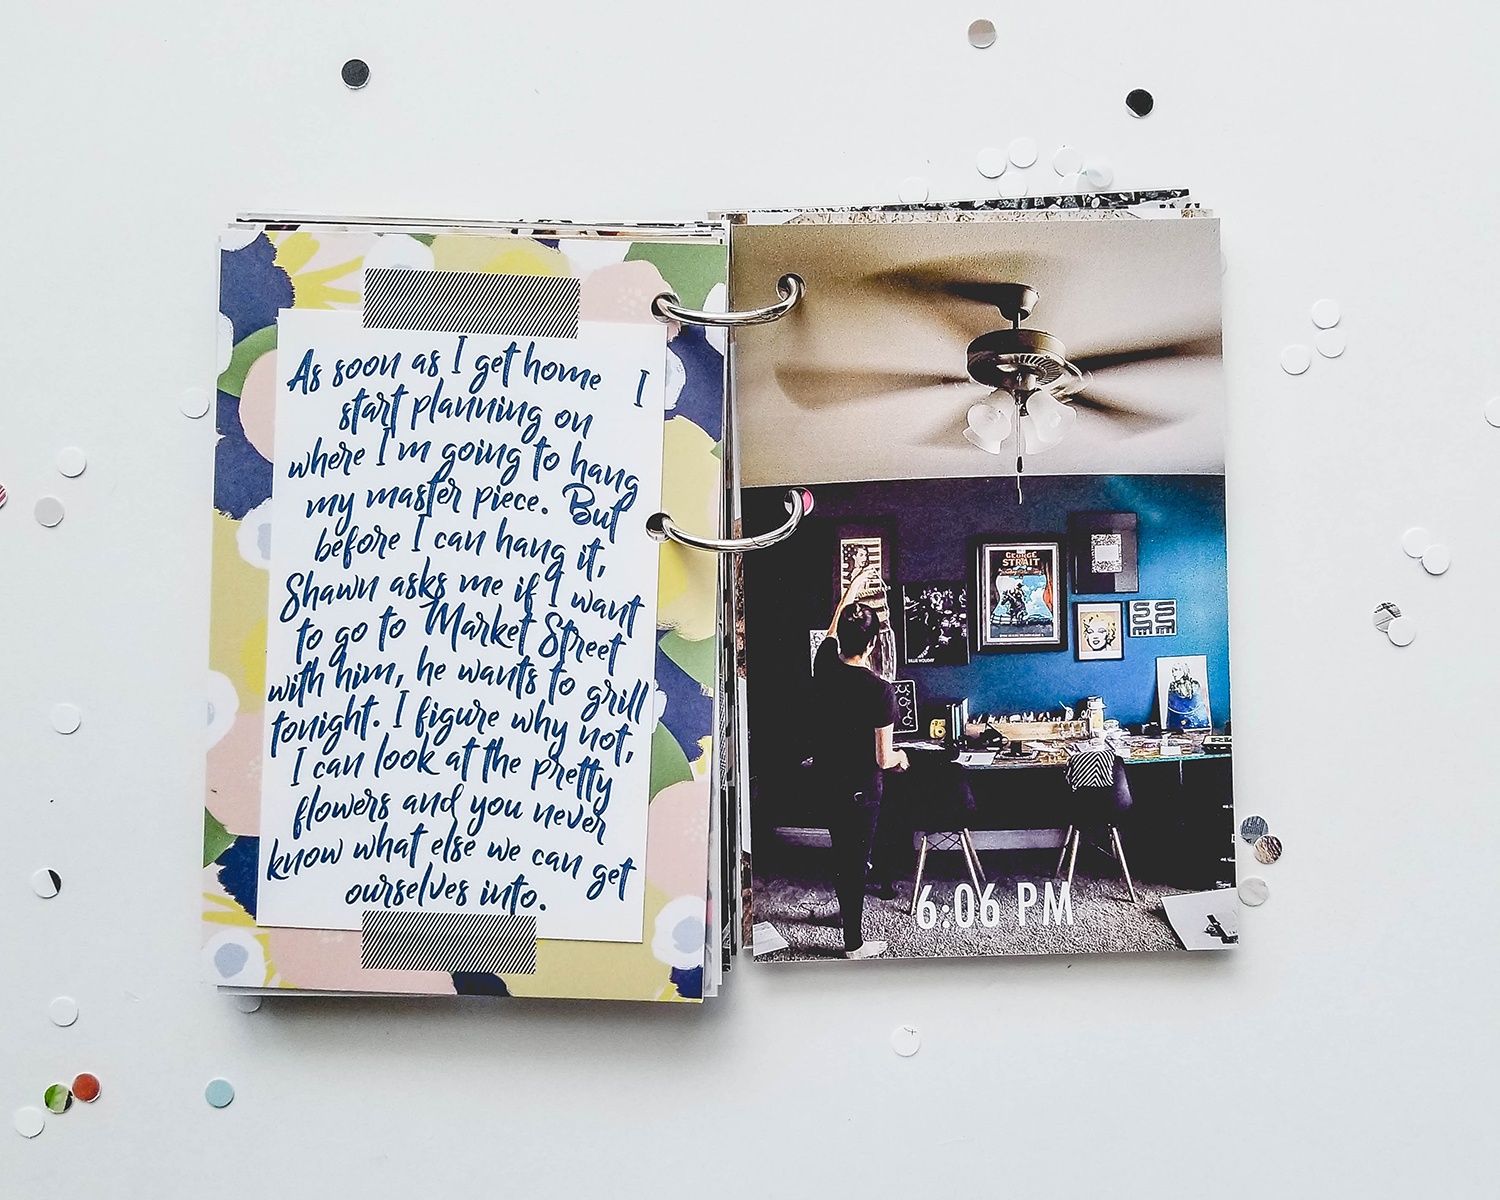 As soon as I get home I
start planning on
where I'm going to hang
my master piece. But
before I can hang it,
Shawn asks me if I want
to go to Market Street
with him, he wants to grill
tonight. I figure why not,
I can look at the pretty
flowers and you never
know what else we can get
ourselves into.
GEORGE
STRAIT
BILLIE HOLIDAY
6:06 PM